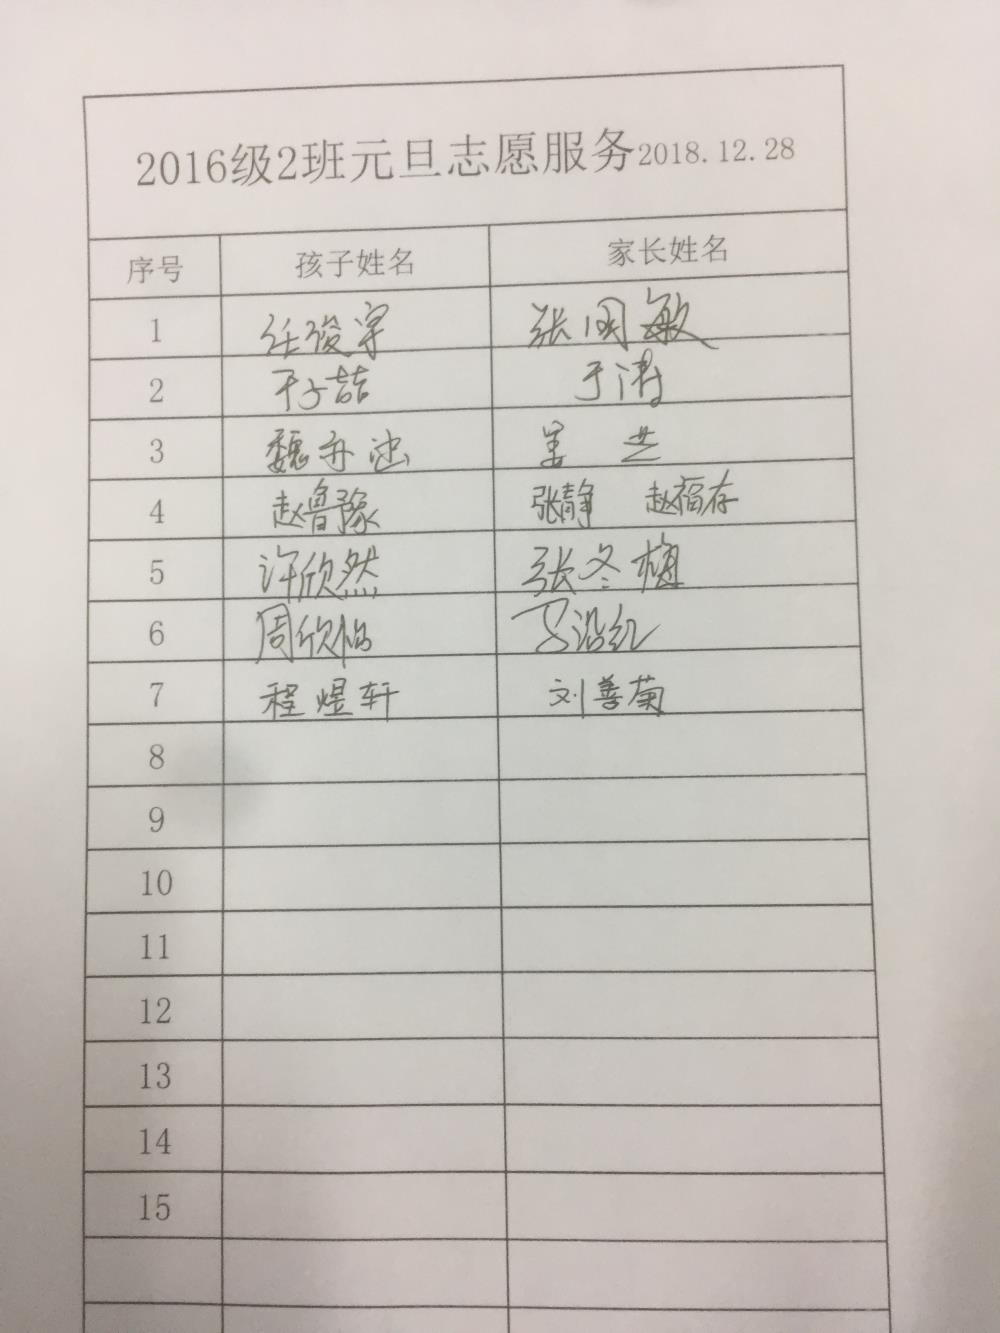 2016级2班元旦志愿服务2018.12.28
序号 孩子姓名 家长姓名
1 任俊宇 张国敏
2 于子喆 于涛
3 魏亦 姜
4 赵鲁豫 张静 赵福存
5 许欣然 张冬梅
6 周欣怡 沿红
7 程煜轩 刘善菊
8
9
10
11
12
13
14
15